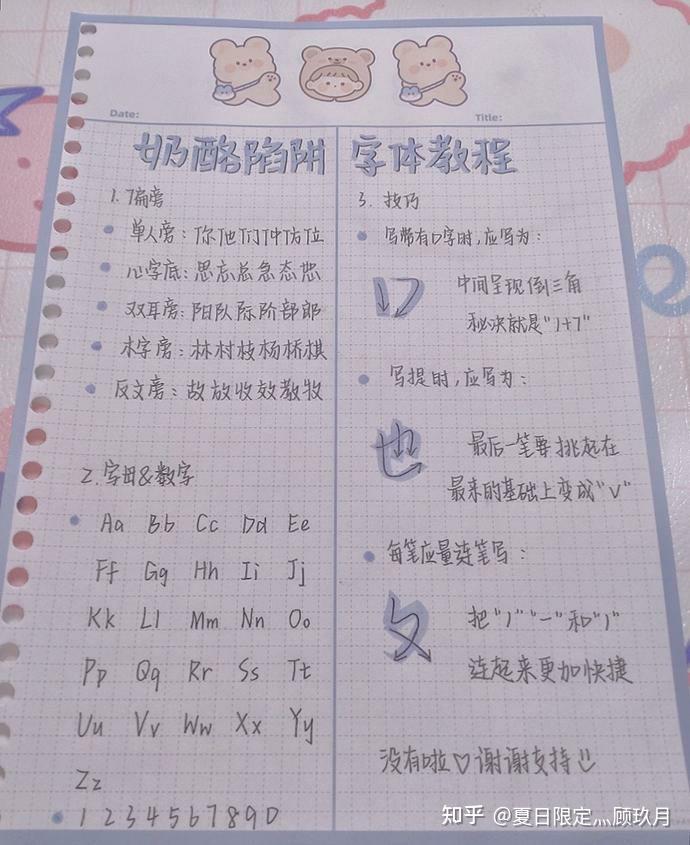 Date:
Title:
奶酪陷阱 字体教程
1. 偏旁
单人旁：你他们仲伤位
心字底：思忘总急态想
双耳旁：阳队际阶部郎
木字旁：林村枝杨桥棋
反文旁：故放收效教牧
2. 字母&数字
Aa Bb Cc Dd Ee
Ff Gg Hh Ii Jj
Kk Ll Mm Nn Oo
Pp Qq Rr Ss Tt
Uu Vv Ww Xx Yy
Zz
1 2 3 4 5 6 7 8 9 0
3. 技巧
写带有口字时，应写为：
口
中间呈现倒三角
秘决就是"1+7"
写提时，应写为：
也
最后一笔要挑起在
最来的基础上变成"V"
每笔应量连笔写：
攵
把"丿""一"和"丿"
连起来更加快捷
没有啦♡谢谢支持
知乎 @夏日限定灬顾玖月